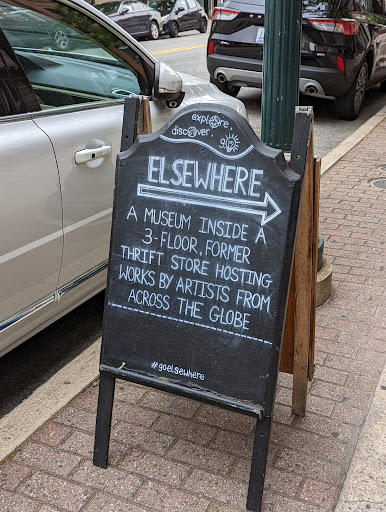 explore,
discover,
go
ELSEWHERE
A MUSEUM INSIDE A
3-FLOOR, FORMER
THRIFT STORE HOSTING
WORKS BY ARTISTS FROM
ACROSS THE GLOBE
#goelsewhere